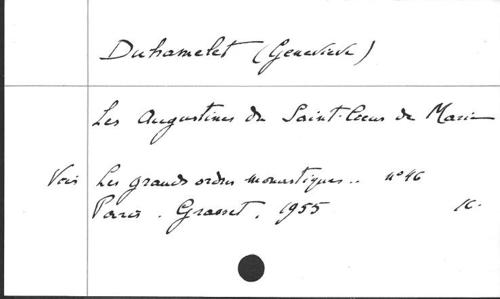 Duhamelet (Geneviève)
Les Augustines du Saint-Cœur de Marie
Voir Les grands ordres monastiques.. n° 46
Paris. Grasset, 1955